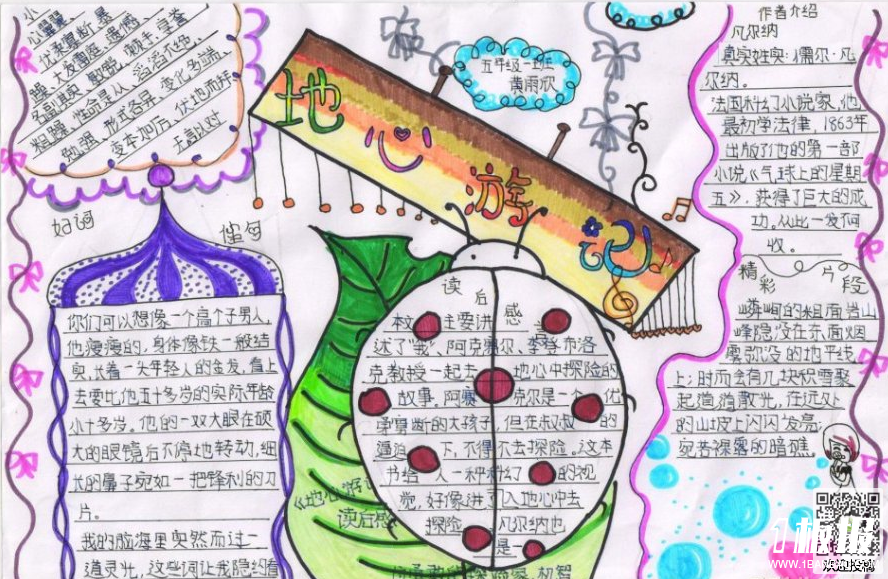 小
心翼翼
优柔寡断 暴
躁、大发雷霆、遗憾
名副其实、敏锐、顺手、享誉
粗躁、性命是从、滔滔不绝、
勉强、形式各异、变化多端、
变本加厉、伏地而祥
无言以对
好词
佳句
你们可以想像一个高个子男人,
他瘦瘦的,身体像铁一般结
实,长着一头年轻人的金发,看上
去要比他五十多岁的实际年龄
小十多岁。他的一双大眼在硕
大的眼镜后不停地转动,细
长的鼻子宛如一把锋利的刀
片。
我的脑海里突然而过一
道灵光,这些词让我隐约看
五年级一班
黄雨欣
地心游记
读后感
本文主要讲
述了“我”、阿克赛尔、李登布洛
克教授一起去地心中探险的
故事,阿赛克尔是一个优
柔寡断的大孩子,但在叔叔的
逼迫下,不得不去探险。这本
书给人一种科幻的视
觉,好像进了入地心中去
探险 凡尔纳也
是一
《地心游记
读后感
作者介绍
凡尔纳
真实姓实:儒尔·凡
尔纳。
法国科幻小说家,他
最初学法律,1863年
出版了他的第一部
小说《气球上的星期
五》,获得了巨大的成
功。从此一发不可
收。
精彩片段
嶙峋的粗面岩山
峰隐没在东面烟
雾弥漫的地平线
上;时而会有几块积雪聚
起道道散光,在远处
的山坡上闪闪发亮;
宛若裸露的暗礁
欢迎投稿